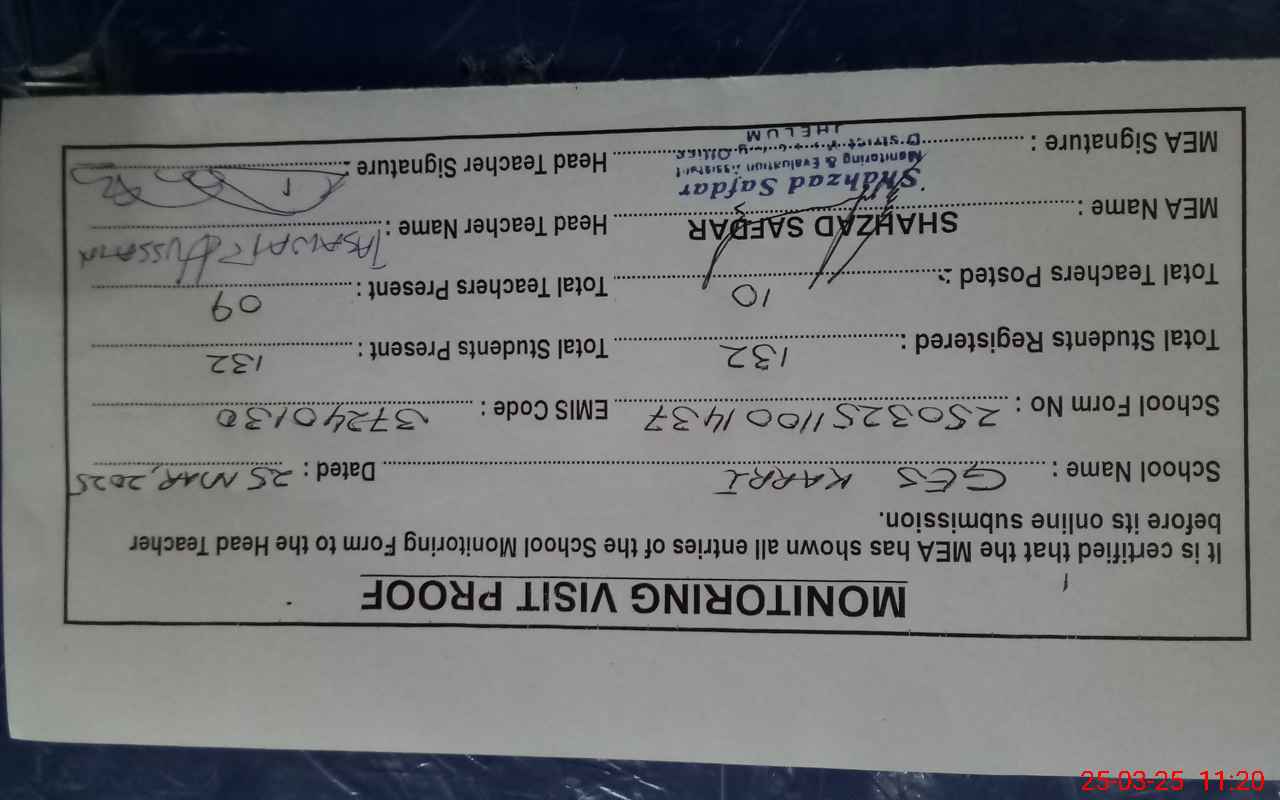 MONITORING VISIT PROOF
It is certified that the MEA has shown all entries of the School Monitoring Form to the Head Teacher
before its online submission.
School Name : GES KARRI Dated : 25 MAR, 2025
School Form No : 25032511001437 EMIS Code : 37240130
Total Students Registered : 132 Total Students Present : 132
Total Teachers Posted : 10 Total Teachers Present : 09
MEA Name : SHAHZAD SAFDAR Head Teacher Name : TASAWAR HUSSAIN
MEA Signature : Head Teacher Signature :
Shahzad Safdar
Monitoring & Evaluation Assistant
JHELUM
25-03-25 11:20